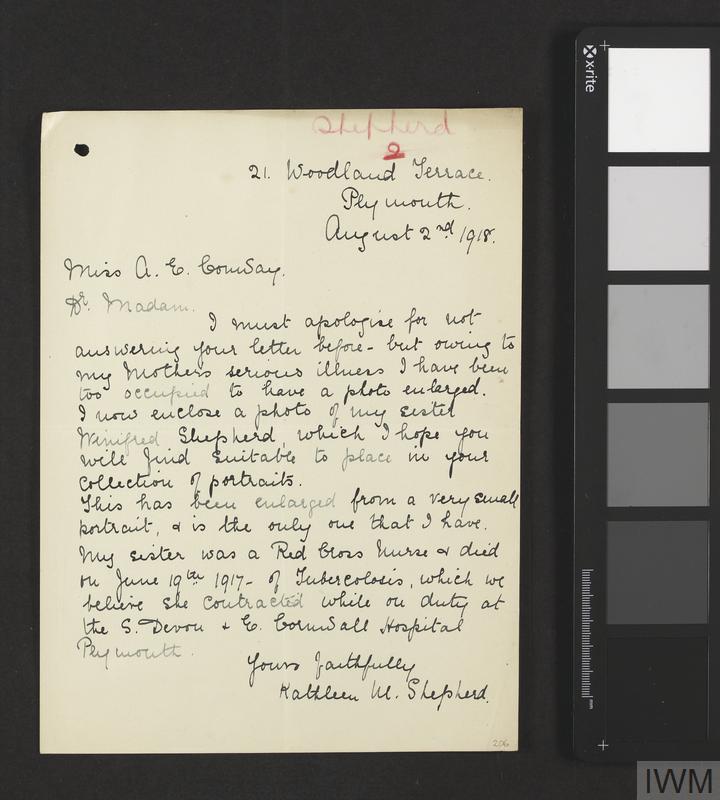 Shepherd
2
21. Woodland Terrace.
Plymouth.
August 2nd 1918.
Miss A. E. Conway.
Dr. Madam.
I must apologise for not
answering your letter before - but owing to
my Mothers serious illness I have been
too occupied to have a photo enlarged.
I now enclose a photo of my sister
Winifred Shepherd, which I hope you
will find suitable to place in your
collection of portraits.
This has been enlarged from a very small
portrait, & is the only one that I have.
My sister was a Red Cross Nurse & died
on June 19th 1917 - of Tubercolosis, which we
believe she contracted while on duty at
the S. Devon & E. Cornwall Hospital
Plymouth.
Yours faithfully
Kathleen M. Shepherd.
206
x·rite
mm
IWM